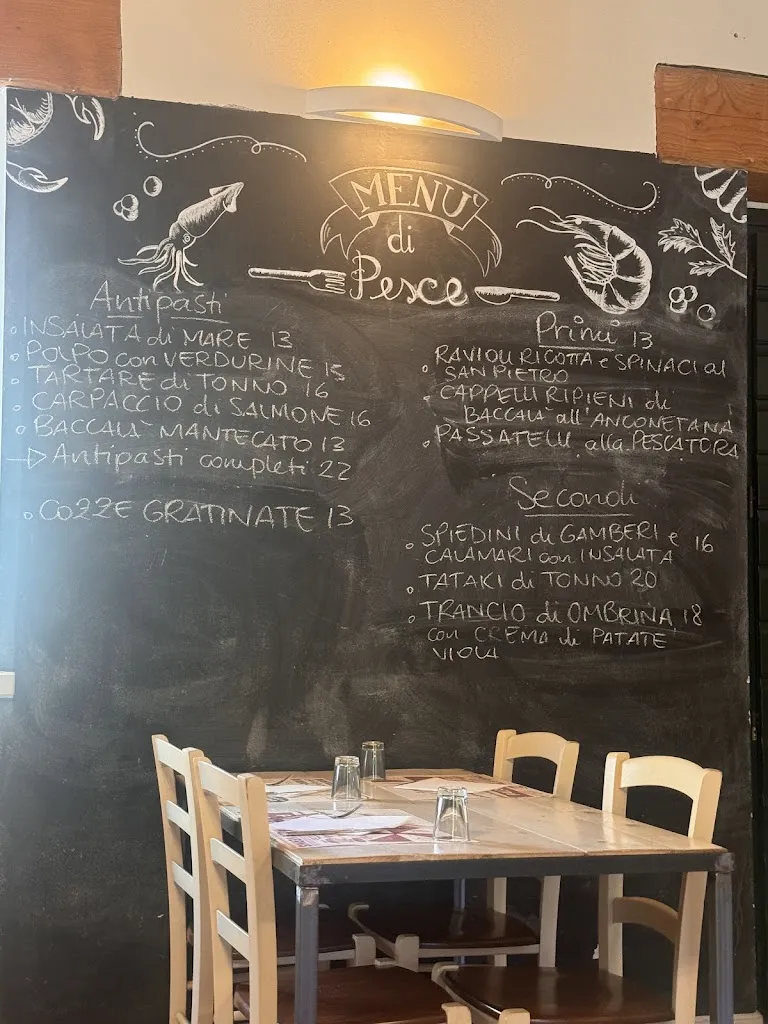 MENU'
di
Pesce
Antipasti
INSALATA di MARE 13
POLPO con VERDURINE 15
TARTARE di TONNO 16
CARPACCIO di SALMONE 16
BACCALÀ MANTECATO 13
Antipasti completi 22
COZZE GRATINATE 13
Primi 13
RAVIOLI RICOTTA e SPINACI al
SAN PIETRO
CAPPELLI RIPIENI di
BACCALÀ all'ANCONETANA
PASSATELLI alla PESCATORA
Secondi
SPIEDINI di GAMBERI e 16
CALAMARI con INSALATA
TATAKI di TONNO 20
TRANCIO di OMBRINA 18
con CREMA di PATATE
VIOLA